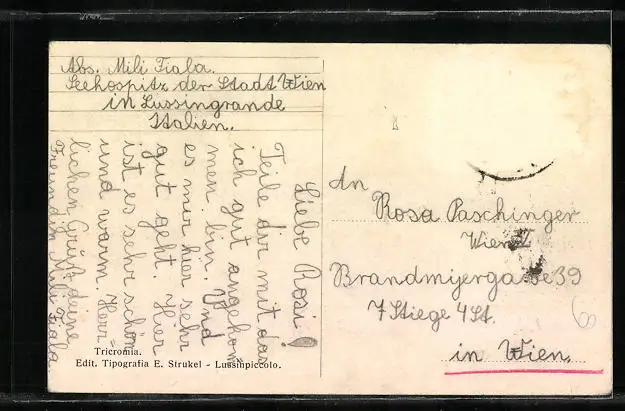 Abs. Mili Fiala.
Seehospitz der Stadt Wien
in Lussingrande
Italien.
Liebe Rosi!
Teile dir mit das
ich gut angekom
men bin. Und
es mir hier sehr
gut geht. Hier
ist es sehr schön
und warm. Herz-
lichen Gruß deine
Freundin Mili Fiala.
Tricromia.
Edit. Tipografia E. Strukel - Lussinpiccolo.
An
Rosa Paschinger
Wien
39
7 Stiege 4 St.
in Wien.
60